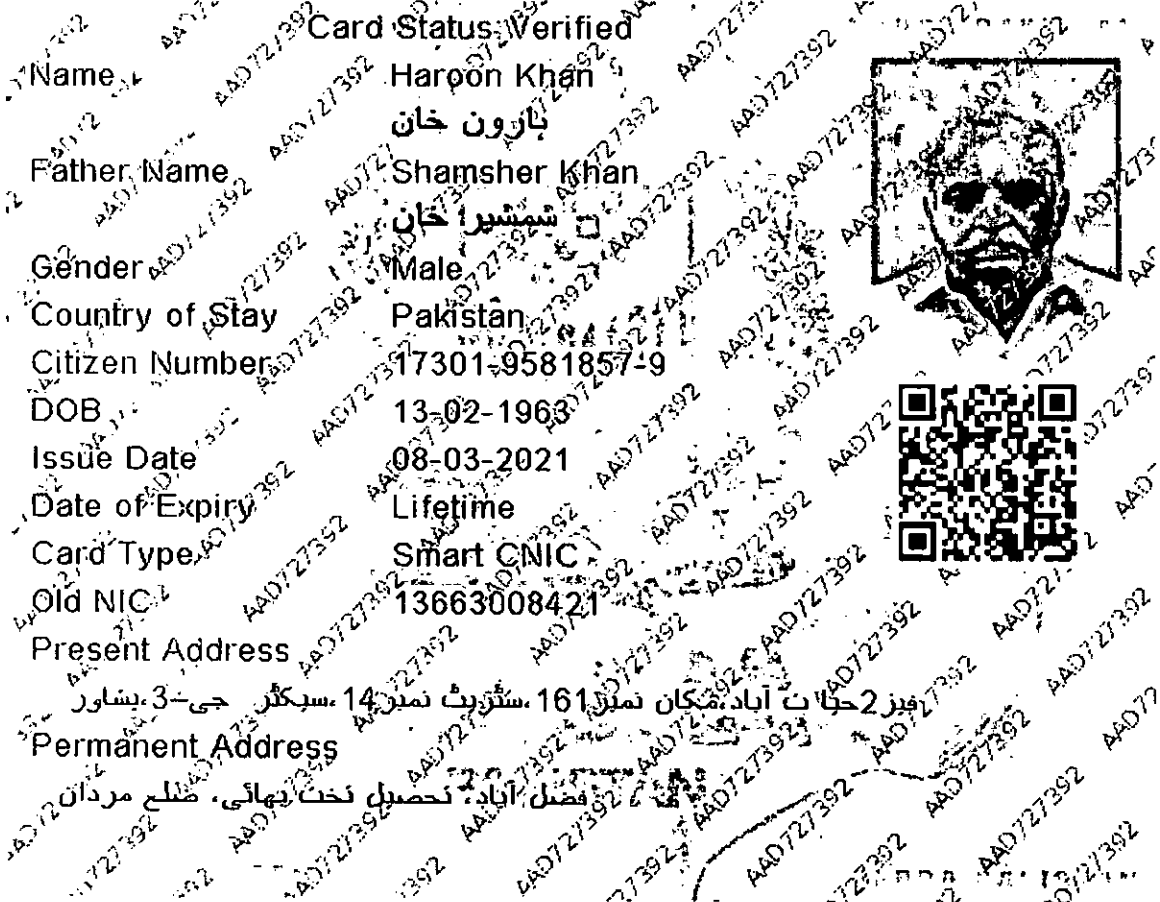 Card Status: Verified
Name Haroon Khan
ہارون خان
Father Name Shamsher Khan
شمشیر خان
Gender Male
Country of Stay Pakistan
Citizen Number 17301-9581857-9
DOB 13-02-1963
Issue Date 08-03-2021
Date of Expiry Lifetime
Card Type Smart CNIC
Old NIC 13663008421
Present Address
فیز2حیا ت آباد،مکان نمبر161،سٹریٹ نمبر14،سیکٹر جی-3،پشاور
Permanent Address
فضل آباد، تحصیل تخت بھائی، ضلع مردان
AAD727392